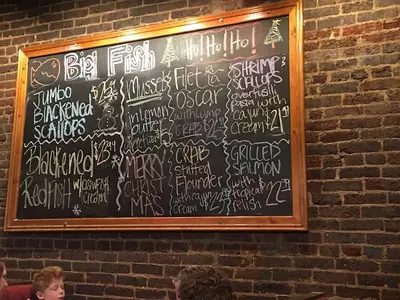 Big Fish
Ho! Ho! Ho!
JUMBO
Blackened
SCALLOPS
Mussels
in lemon
butter
Filet &
oscar
with lump
CRAB
SHRIMP &
SCALLOPS
over fusilli
pasta with
cajun
cream 21.99
Blackened
RedFish w/ crawfish
cream
$25.99
MERRY
CHRIST
MAS
CRAB
stuffed
Flounder
with cajun
cream
GRILLED
SALMON
with
tropical
relish 22.99